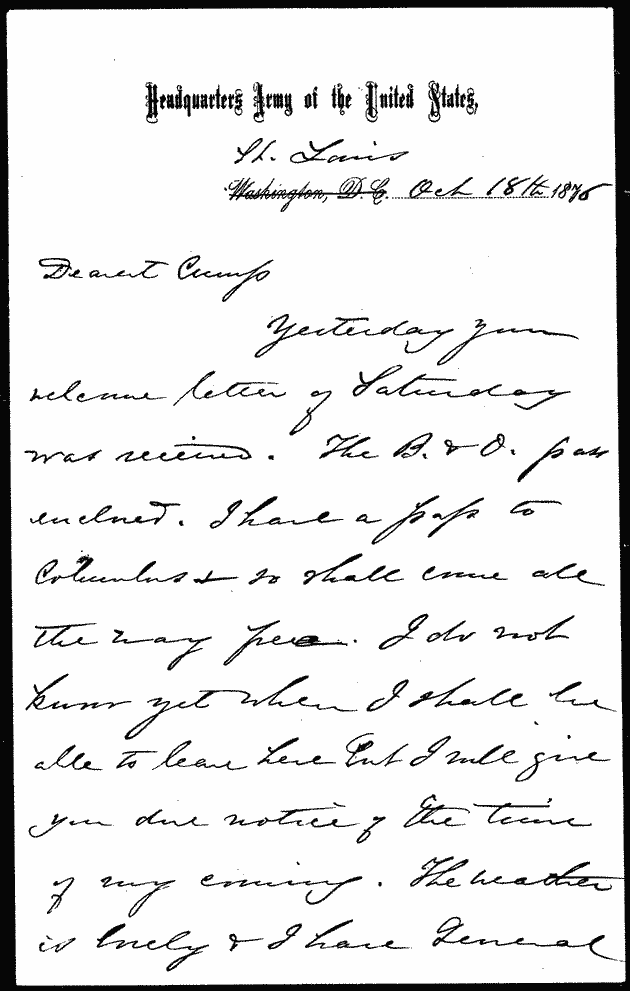 Headquarters Army of the United States,
St. Louis
Washington, D.C. Oct 18th 1876
Dearest Cump
Yesterday your
welcome letter of Saturday
was received. The B. & O. pass
enclosed. I have a pass to
Columbus & so shall come all
the way free. I do not
know yet when I shall be
able to leave here but I will give
you due notice of the time
of my coming. The weather
is lovely & I have General